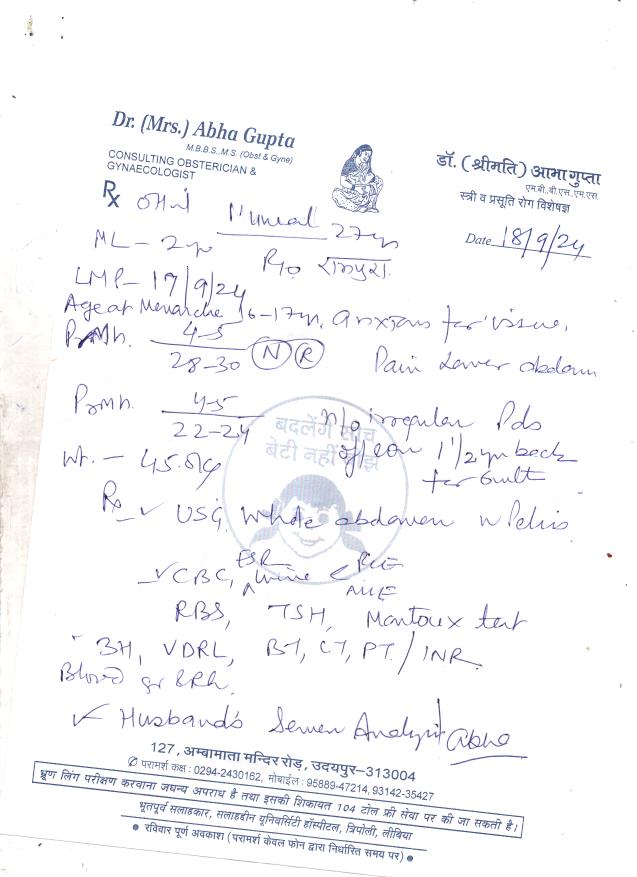 Dr. (Mrs.) Abha Gupta
M.B.B.S.,M.S. (Obst & Gyne)
CONSULTING OBSTERICIAN &
GYNAECOLOGIST
डॉ. (श्रीमति) आभा गुप्ता
एम.बी.बी.एस.,एम.एस.
स्त्री व प्रसूति रोग विशेषज्ञ
Date 18/9/24
Rx
27yr
ML - 2yr
R/o
LMP - 17/9/24
Age at Menarche 16-17yr. anxious for issue.
4-5
28-30 (N) (R) Pain Lower abdomen
PrMh. 4-5
22-24
बदलेंगे सोच
बेटी नहीं बोझ
irregular Pds
1 1/2 yr back
Wt. - 45.
for 6mth
Rx
✓ USG Whole abdomen Pelvis
ESR
✓ CBC, Urine <
RBS, TSH, Montoux test
VDRL, BT, CT, PT/INR
Blood gr & Rh.
✓ Husband's Semen Analysis Abha
127, अम्बामाता मन्दिर रोड़, उदयपुर-313004
परामर्श कक्ष : 0294-2430162, मोबाईल : 95889-47214, 93142-35427
भ्रूण लिंग परीक्षण करवाना जघन्य अपराध है तथा इसकी शिकायत 104 टोल फ्री सेवा पर की जा सकती है।
भूतपूर्व सलाहकार, सलाहद्दीन यूनिवर्सिटी हॉस्पीटल, त्रिपोली, लीबिया
● रविवार पूर्ण अवकाश (परामर्श केवल फोन द्वारा निर्धारित समय पर) ●